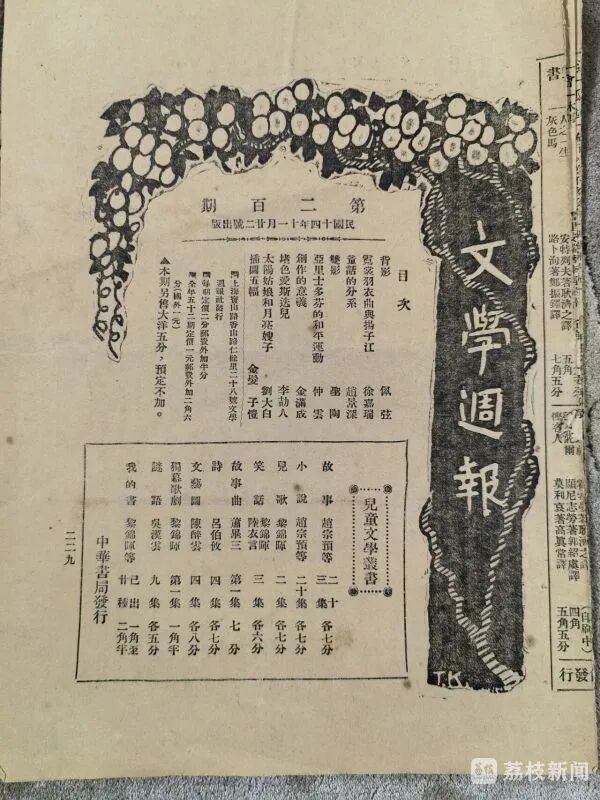 文學週報
第二百期
民國十四年十一月廿二號出版
目次
背影 佩弦
霓裳羽衣曲與揚子江 徐嘉瑞
童話的分系 趙景深
雙影 聖陶
亞里士多芬的和平運動 仲雲
創作的意義 金滿成
堵色愛斯迭兒 李劼人
太陽姑娘和月亮嫂子 劉大白
插圖五幅 金髮 子愷
上海寶山路香山路仁餘里二十八號文學
週報社發行
每期定價二分郵費外加半分
全年五十二期定價一元郵費外加二角六
分（國外一元）
本期另售大洋五分，預定不加。
兒童文學叢書
故事 趙宗預等 二十三集 各七分
小說 趙宗預等 二十集 各七分
兒歌 黎錦暉 二集 各七分
笑話 黎錦暉 陸衣言 三集 各六分
故事曲 蕭畢三 第一集 七分
詩 呂伯攸 四集 各七分
文藝圖 陳醉雲 四集 各八分
獨幕歌劇 黎錦暉 第一集 一角半
謎語 吳漢雲 九集 各五分
我的書 黎錦暉等 已出廿種 一角至二角半
中華書局發行
二二九
T.K.
書
人之一生
灰色馬
安特列夫著耿濟之譯 五角
路卜洵著鄭振鐸譯 七角五分
顯尼志勞著郭紹虞譯 四角
莫利哀著高真常譯 五角五分
（印刷中）
發行
荔枝新闻